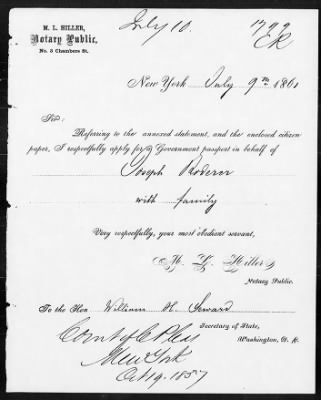 July 10.
M. L. HILLER,
Notary Public,
No. 3 Chambers St.
New York July 9th 1861
Sir:
Referring to the annexed statement, and the enclosed citizen
paper, I respectfully apply for a Government passport in behalf of
Joseph
with family
Very respectfully, your most obedient servant,
M. L. Hiller
Notary Public.
To the Hon William H. Seward
Secretary of State,
Washington,
Court of C Pleas
New York
Oct 19. 1857